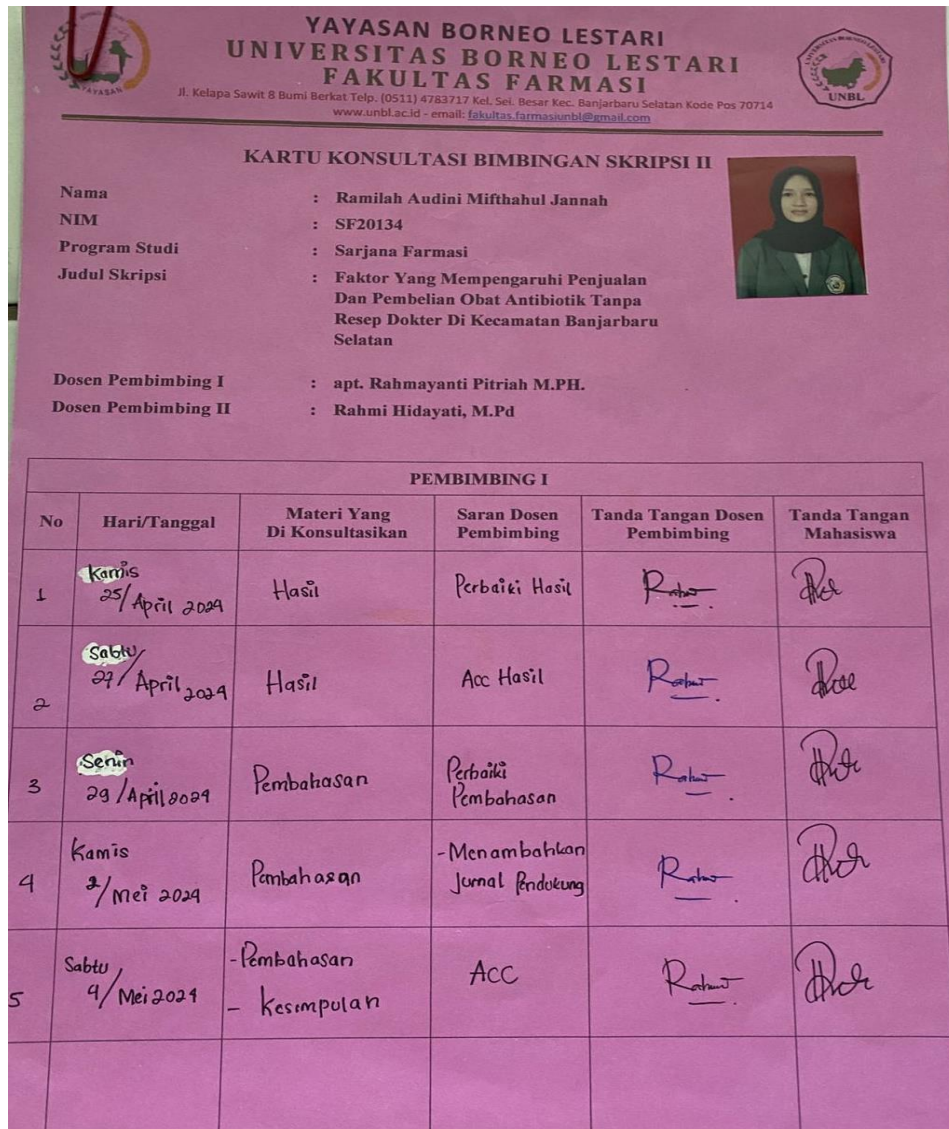 YAYASAN BORNEO LESTARI
UNIVERSITAS BORNEO LESTARI
FAKULTAS FARMASI
Jl. Kelapa Sawit 8 Bumi Berkat Telp. (0511) 4783717 Kel. Sei. Besar Kec. Banjarbaru Selatan Kode Pos 70714
www.unbl.ac.id - email: fakultas.farmasiunbl@gmail.com
YAYASAN
UNBL
KARTU KONSULTASI BIMBINGAN SKRIPSI II
Nama : Ramilah Audini Mifthahul Jannah
NIM : SF20134
Program Studi : Sarjana Farmasi
Judul Skripsi : Faktor Yang Mempengaruhi Penjualan
Dan Pembelian Obat Antibiotik Tanpa
Resep Dokter Di Kecamatan Banjarbaru
Selatan
Dosen Pembimbing I : apt. Rahmayanti Pitriah M.PH.
Dosen Pembimbing II : Rahmi Hidayati, M.Pd
PEMBIMBING I
No Hari/Tanggal Materi Yang Di Konsultasikan Saran Dosen Pembimbing Tanda Tangan Dosen Pembimbing Tanda Tangan Mahasiswa
1 Kamis 25/April 2024 Hasil Perbaiki Hasil
2 Sabtu 27/April 2024 Hasil Acc Hasil
3 Senin 29/April 2024 Pembahasan Perbaiki Pembahasan
4 Kamis 2/Mei 2024 Pembahasan -Menambahkan Jurnal Pendukung
5 Sabtu 4/Mei 2024 -Pembahasan - Kesimpulan ACC